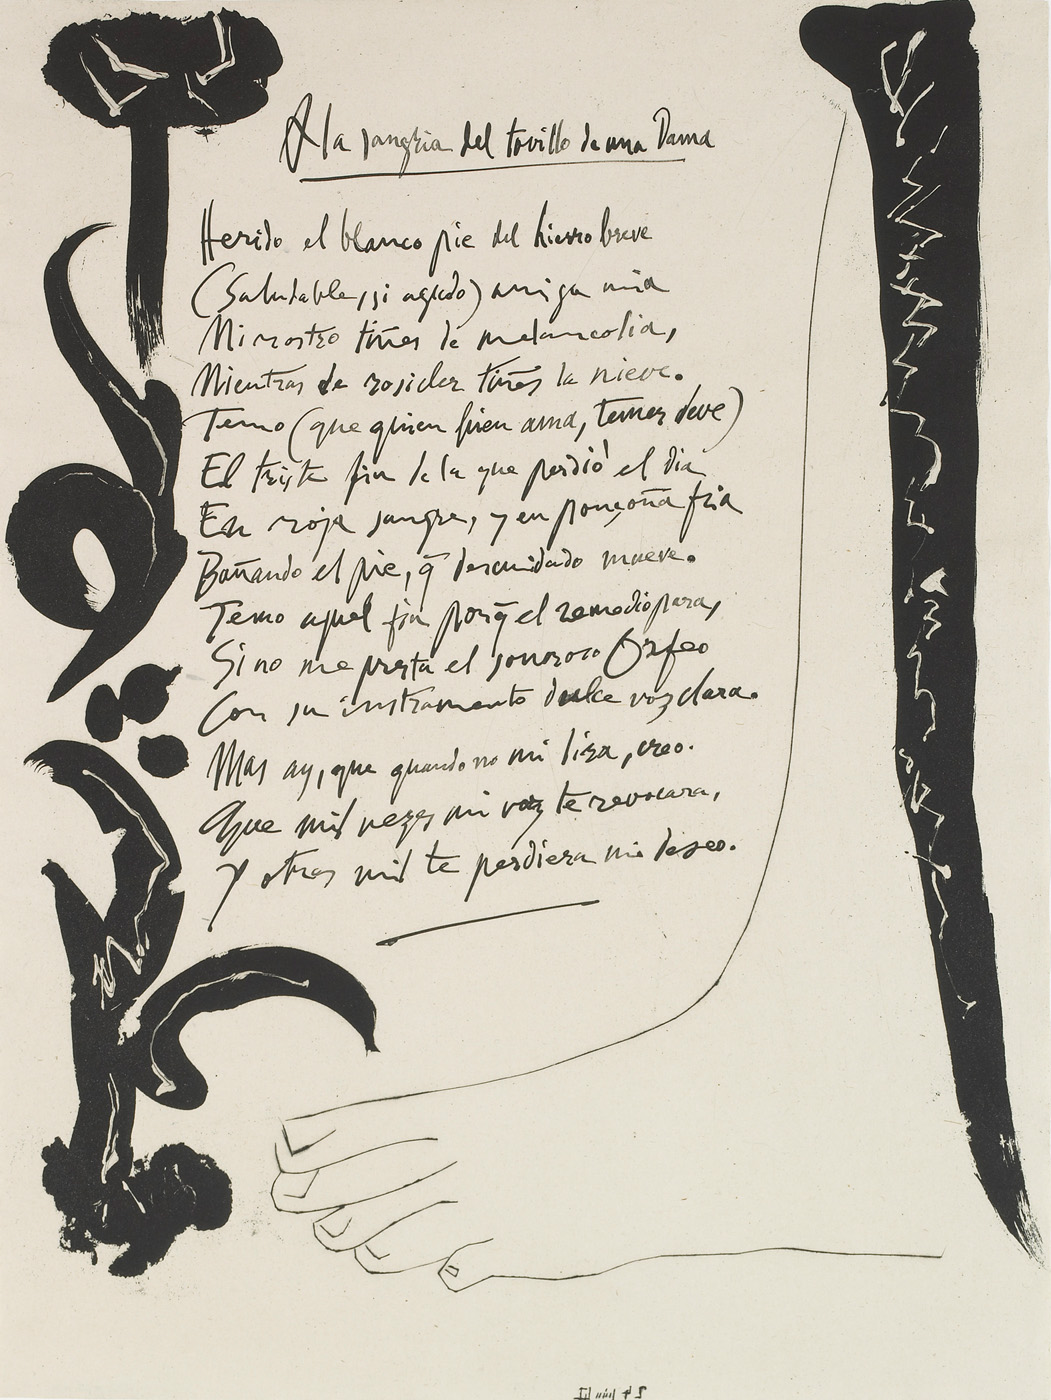 A la sangria del tovillo de una Dama
Herido el blanco pie del hierro breve
(Saludable, si agudo) amiga mia
Mi rostro tiñes de melancolia,
Mientras de rosicler tiñes la nieve.
Temo (que quien bien ama, temer deve)
El triste fin de la que perdió el dia
En roja sangre, y en ponçoña fria
Bañando el pie, q̃ descuidado mueve.
Temo aquel fin porq̃ el remedio para,
Si no me presta el sonoroso Orfeo
Con su instrumento dulce voz clara.
Mas ay, que quando no mi lira, creo.
Que mil vezes mi voz te revocara,
Y otras mil te perdiera mi deseo.